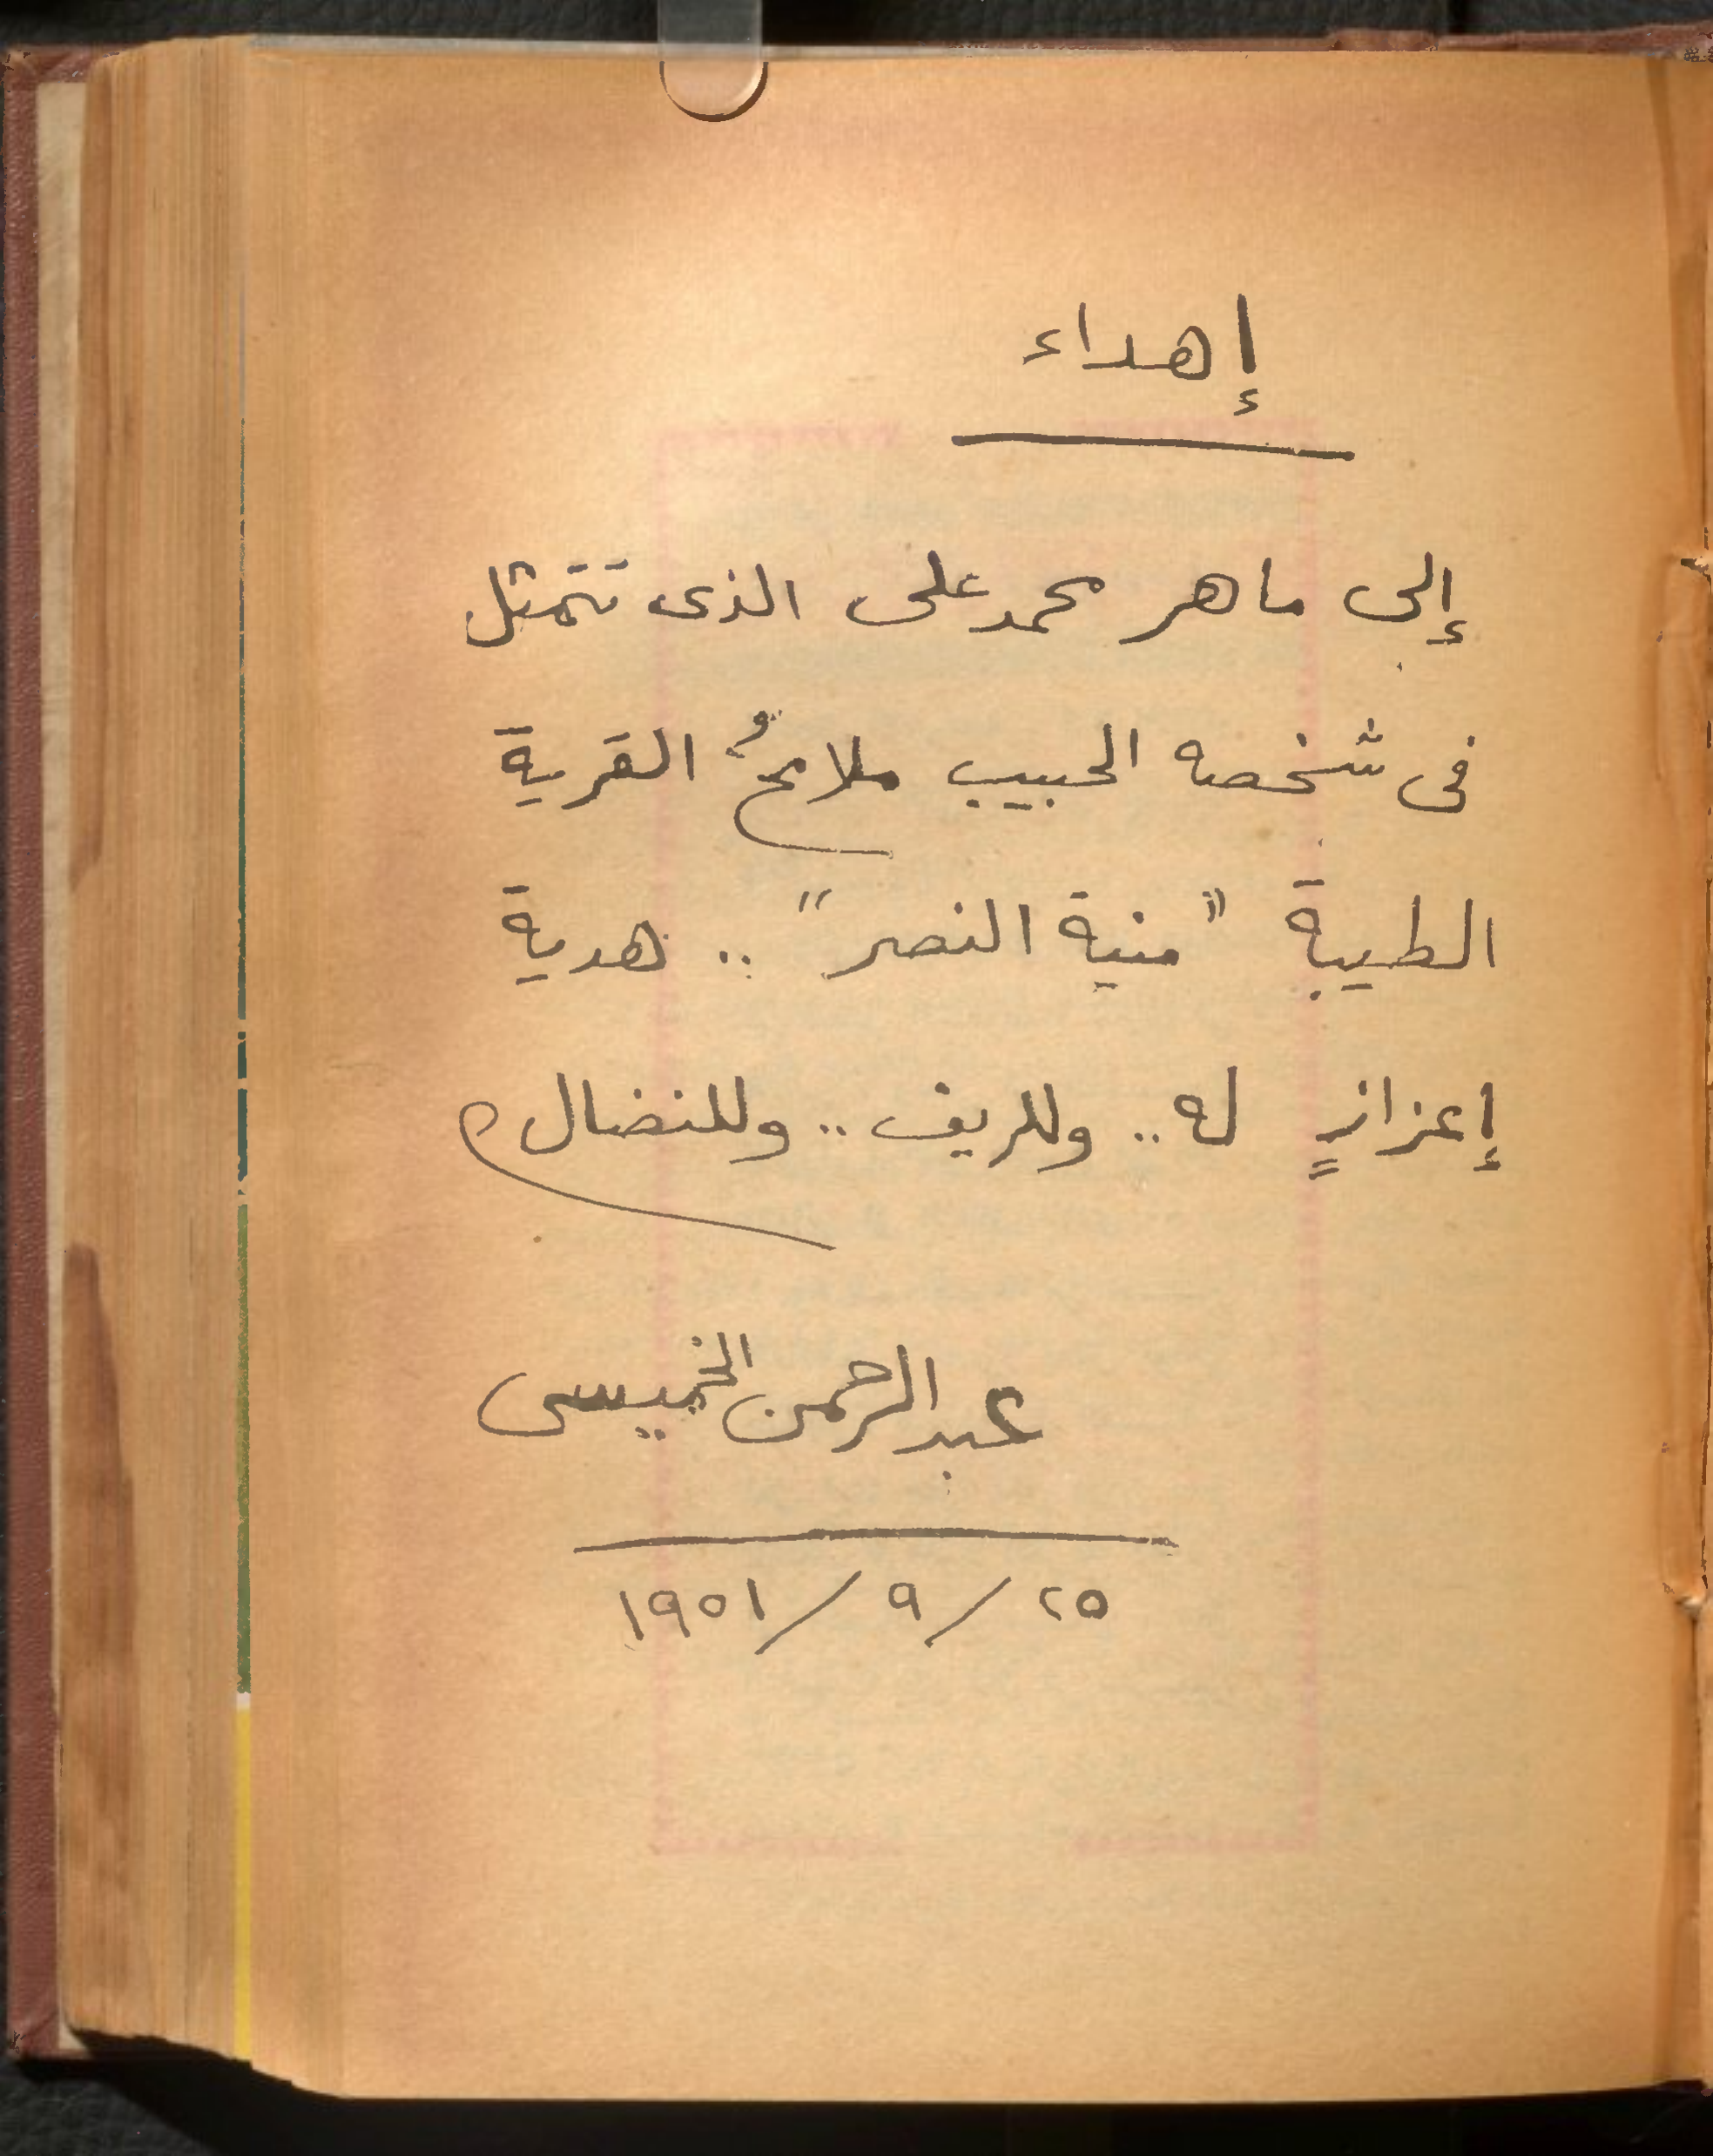 إهداء
إلى ماهر محمد على الذى تتمثل
فى شخصه الحبيب ملامحُ القرية
الطيبة "منية النصر" .. هدية
إعزازٍ له .. وللريف .. وللنضال
عبد الرحمن الخميسى
٢٥ / ٩ / ١٩٥١